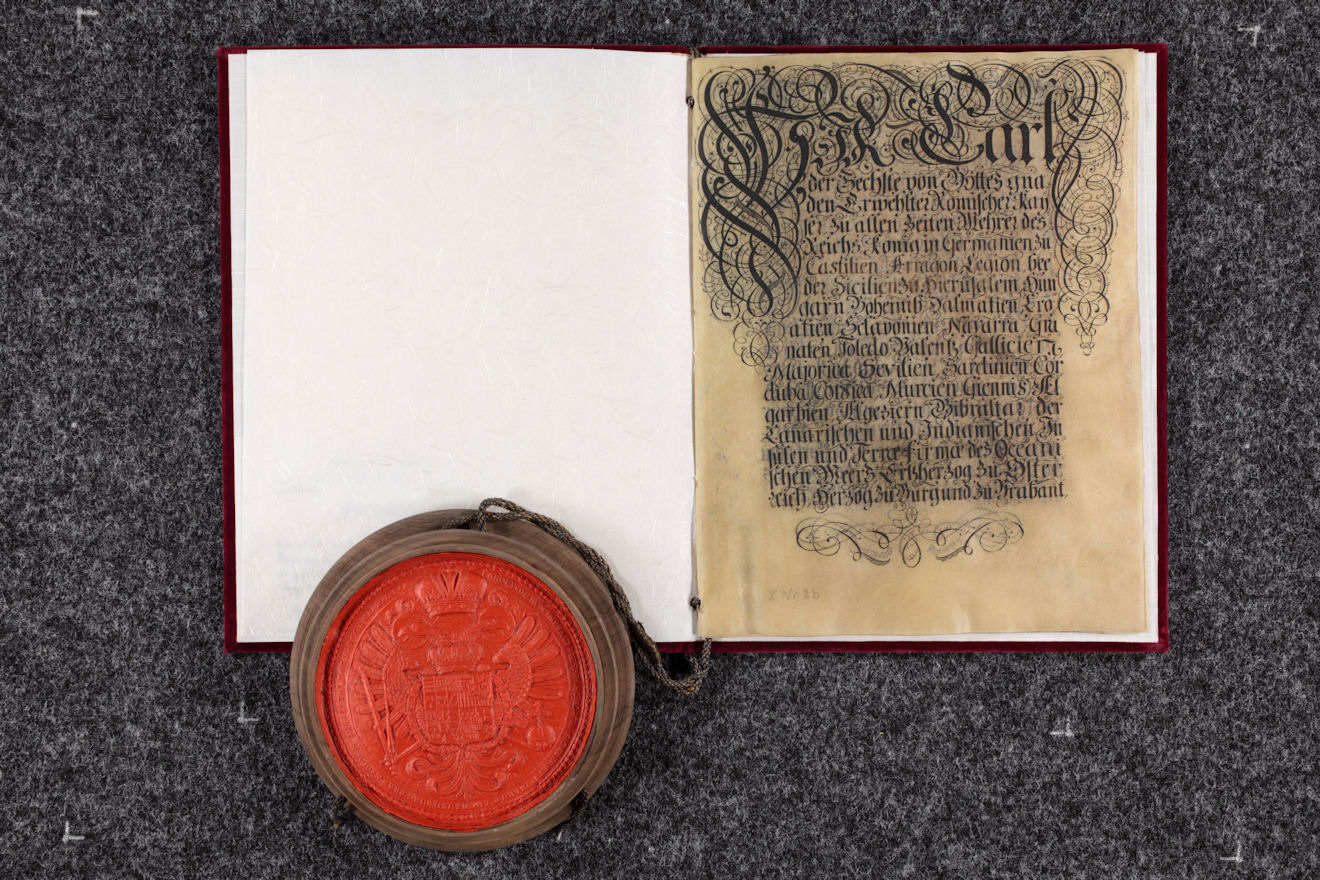 Wir Carl
der Sechste von Gottes gna
den Erwehlter Römischer Kay
ser zu allen Zeiten Mehrer des
Reichs König in Germanien zu
Castilien Arragon Legion bee
der Sicilien zu Hierusalem Hun
garn Boheimb Dalmatien Cro
atien Sclavonien Navarra Gra
naten Toledo Valentz Gallicien
Majorica Sevilien Sardinien Cor
duba Corsica Murcien Giennis Al
garbien Algeziern Gibraltar der
Canarischen und Indianischen In
sulen und Terræ firmæ des Oceani
schen Meers Ertzherzog zu Öster
reich Herzog zu Burgund zu Brabant,
Z Nr. 2b